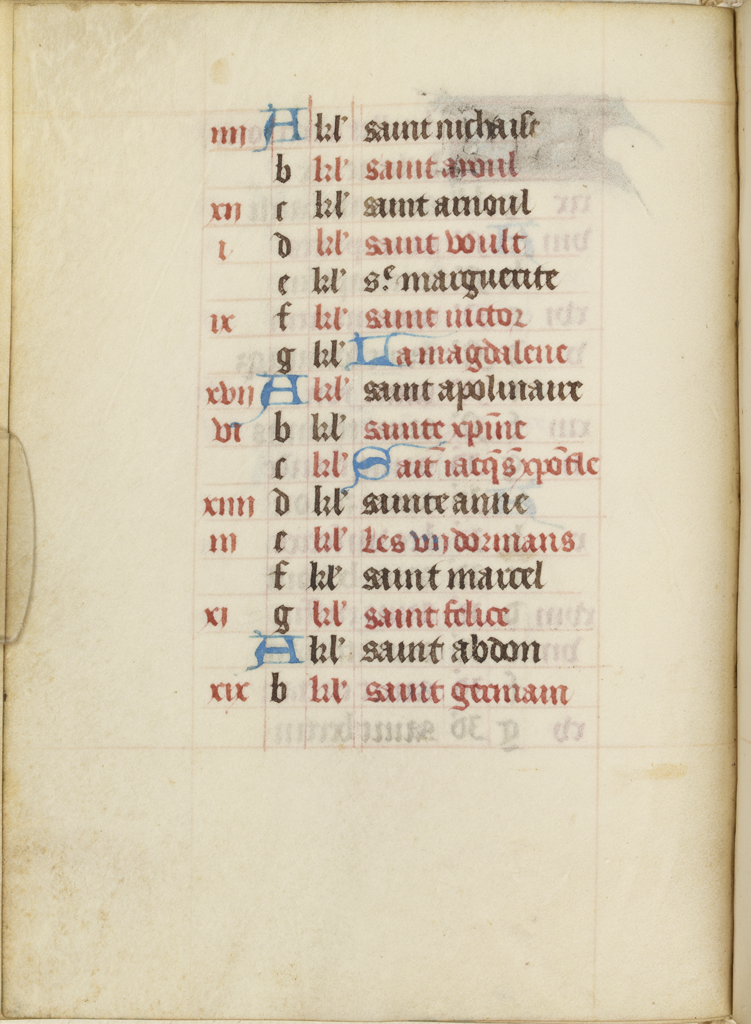 iiij A kl' saint nichaise
b kl' saint aroul
xij c kl' saint arnoul
i d kl' saint voult
e kl' s.e marguerite
ix f kl' saint victor
g kl' La magdalene
xvij A kl' saint apolinaire
vi b kl' sainte xpīne
c kl' Sait iacq̄s xpōfle
xiiij d kl' sainte anne
iij e kl' Les vij dormans
f kl' saint marcel
xi g kl' saint felice
A kl' saint abdon
xix b kl' saint germain